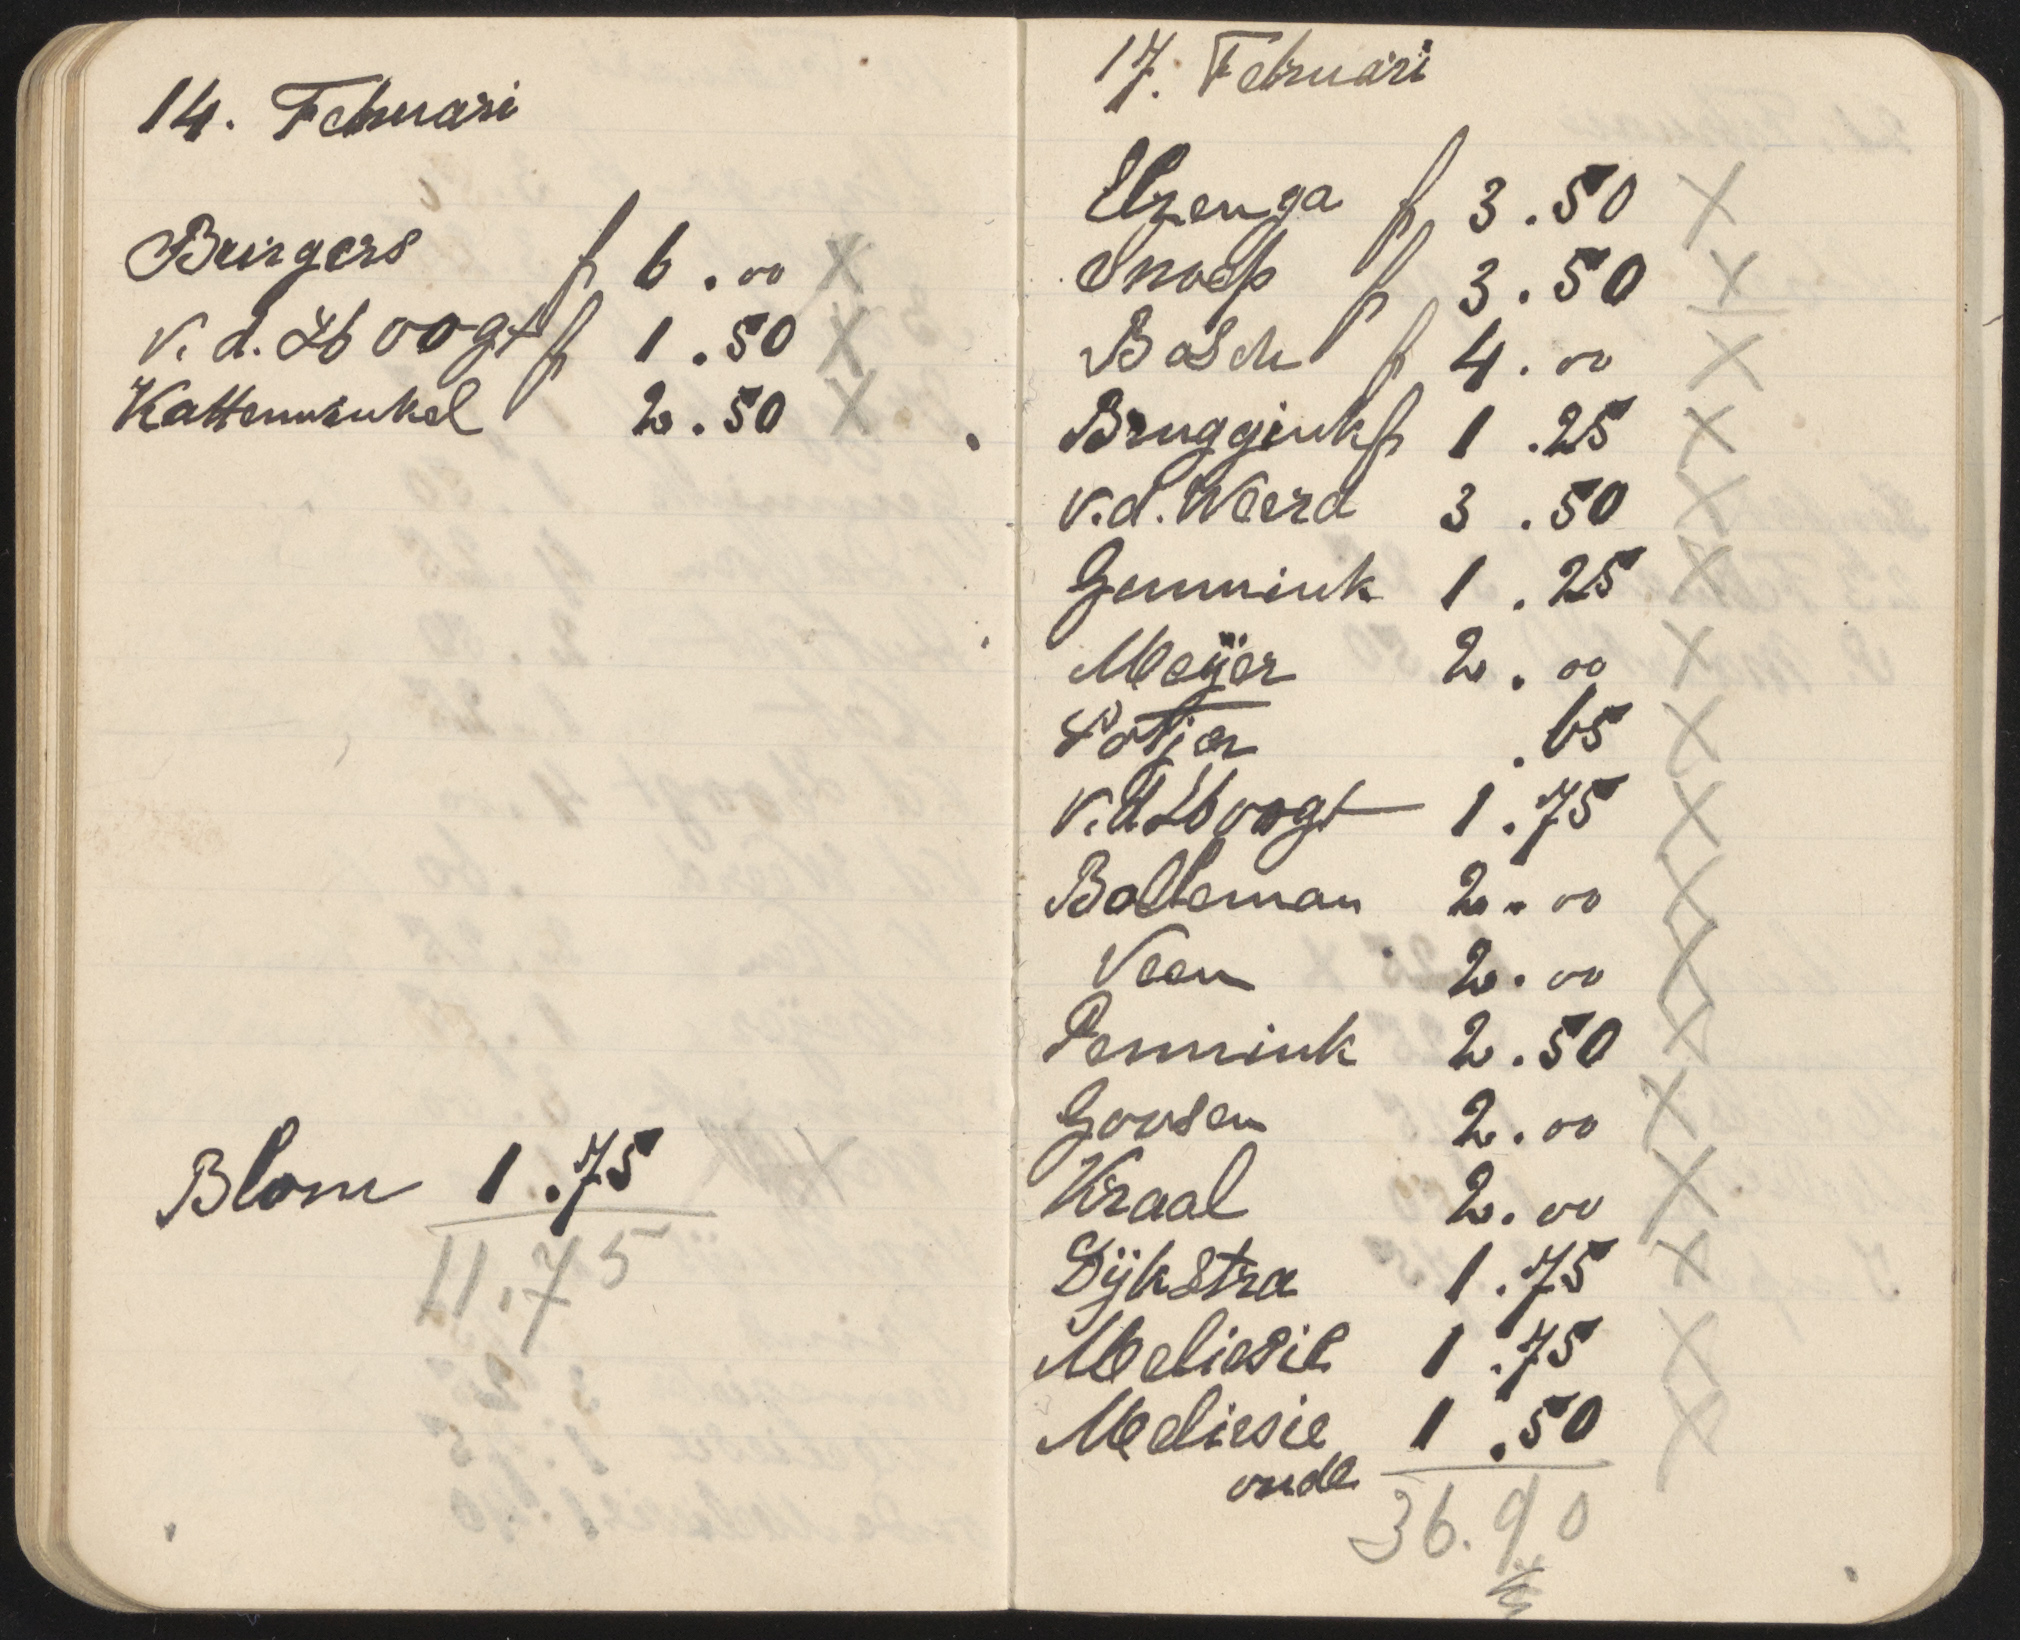 14. Februari
Burgers f 6.00 X
v.d. Hoogt f 1.50 X
Kattenwinkel f 2.50 X
Blom 1.75
11.75
17. Februari
Elzenga f 3.50 X
Snoep f 3.50 X
Bosch f 4.00 X
Bruggink f 1.25 X
v.d. Weerd 3.50 X
Gemmink 1.25 X
Meijer 2.00 X
Potjer .65 X
v.d. Hoogt 1.75 X
Bolleman 2.00 X
Veen 2.00 X
Pennink 2.50 X
Goosen 2.00 X
Kraal 2.00 X
Dijkstra 1.75 X
Meliesie 1.75 X
Meliesie 1.50 X
oude
36.90